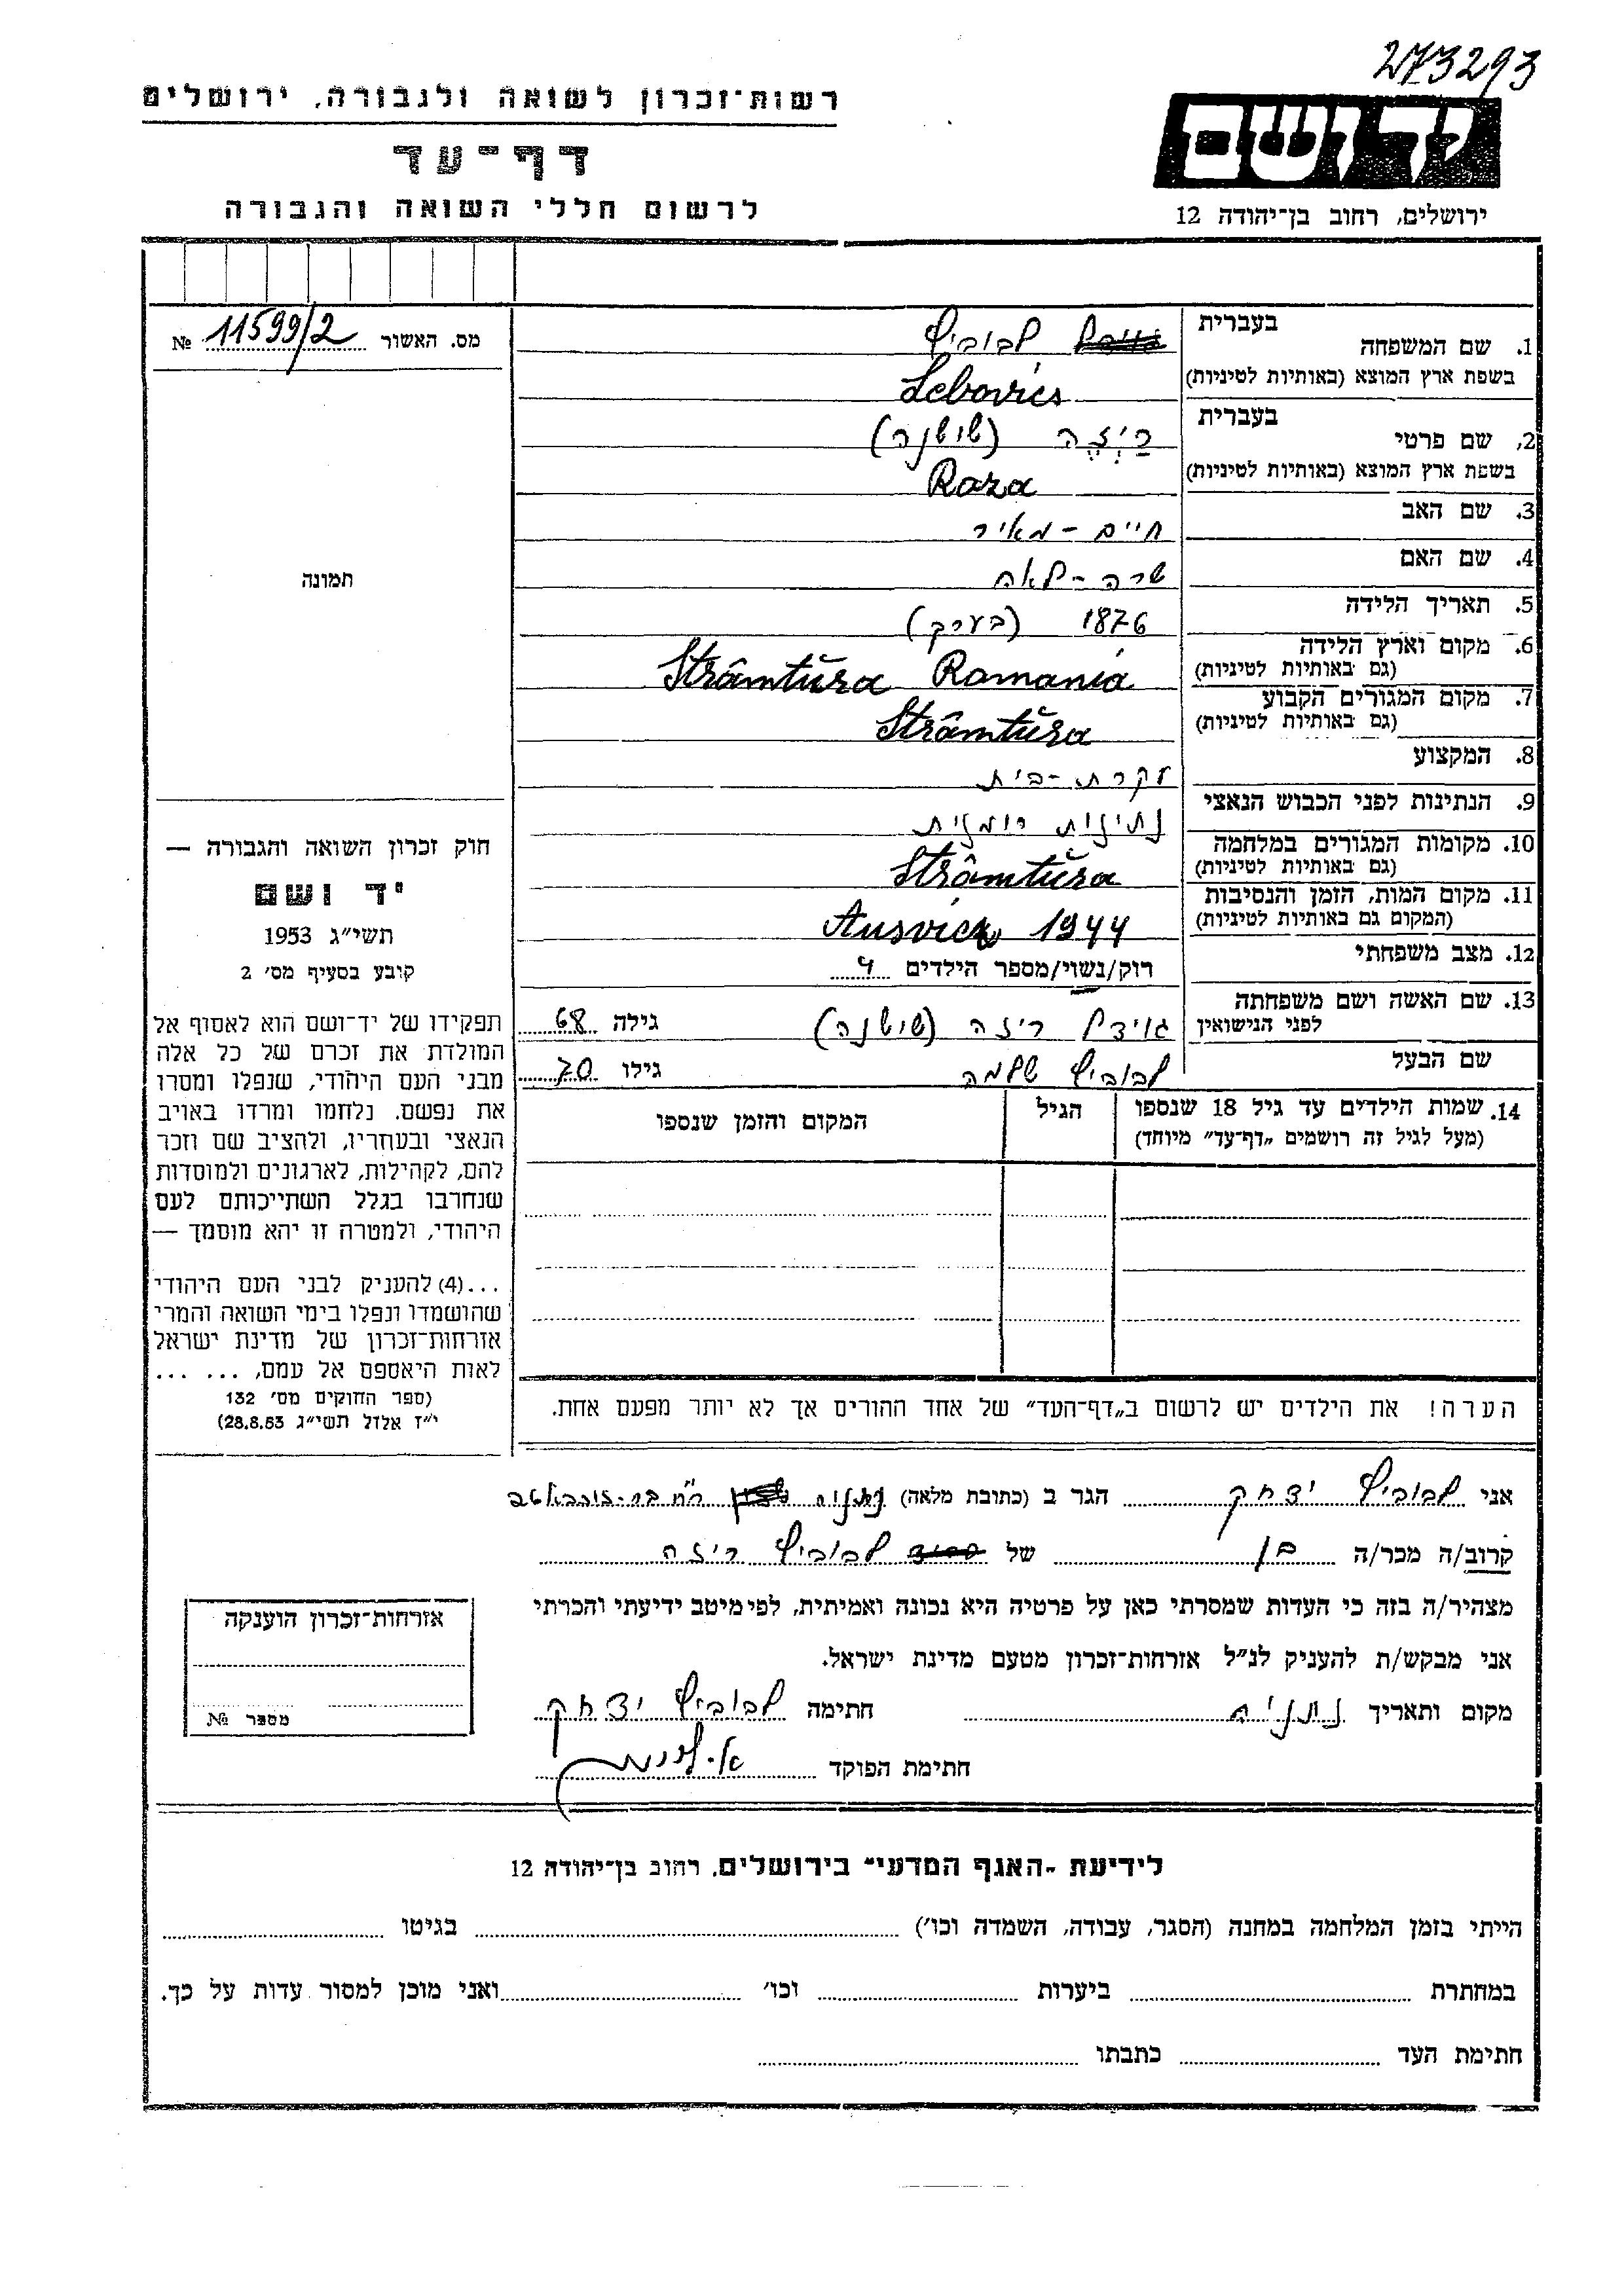 273293
רשות־זכרון לשואה ולגבורה, ירושלים
ידושם
דף־עד
לרשום חללי השואה והגבורה
ירושלים, רחוב בן־יהודה 12
מס. האשור 11599/2 №
1. שם המשפחה בעברית לבוביץ
בשפת ארץ המוצא (באותיות לטיניות) Lebovics
2. שם פרטי בעברית רַיְזֶה (שושנה)
בשפת ארץ המוצא (באותיות לטיניות) Raza
3. שם האב חיים - מאיר
4. שם האם שרה - לאה
5. תאריך הלידה 1876 (בערך)
6. מקום וארץ הלידה
(גם באותיות לטיניות) Strâmtŭra Romania
7. מקום המגורים הקבוע
(גם באותיות לטיניות) Strâmtŭra
8. המקצוע עקרת - בית
9. הנתינות לפני הכבוש הנאצי נתינות רומנית
10. מקומות המגורים במלחמה
(גם באותיות לטיניות) Strâmtŭra
11. מקום המות, הזמן והנסיבות
(המקום גם באותיות לטיניות) Ausvicz 1944
12. מצב משפחתי רוק/נשוי/מספר הילדים 4
13. שם האשה ושם משפחתה
לפני הנישואין גוידל ריזה (שושנה) גילה 68
שם הבעל לבוביץ שלמה גילו 70
14. שמות הילדים עד גיל 18 שנספו
(מעל לגיל זה רושמים „דף־עד” מיוחד)
הגיל
המקום והזמן שנספו
הערה! את הילדים יש לרשום ב„דף־העד” של אחד ההורים אך לא יותר מפעם אחת.
תמונה
חוק זכרון השואה והגבורה —
יד ושם
תשי״ג 1953
קובע בסעיף מס׳ 2
תפקידו של יד־ושם הוא לאסוף אל
המולדת את זכרם של כל אלה
מבני העם היהודי, שנפלו ומסרו
את נפשם, נלחמו ומרדו באויב
הנאצי ובעוזריו, ולהציב שם וזכר
להם, לקהילות, לארגונים ולמוסדות
שנחרבו בגלל השתייכותם לעם
היהודי, ולמטרה זו יהא מוסמך —
...(4) להעניק לבני העם היהודי
שהושמדו ונפלו בימי השואה והמרי
אזרחות־זכרון של מדינת ישראל
לאות היאספם אל עמם, ... ...
(ספר החוקים מס׳ 132
י״ז אלול תשי״ג 28.8.53)
אני לבוביץ יצחק הגר ב (כתובת מלאה) נתניה
קרוב/ה מכר/ה בן של לבוביץ ריזה
מצהיר/ה בזה כי העדות שמסרתי כאן על פרטיה היא נכונה ואמיתית, לפי מיטב ידיעתי והכרתי
אני מבקש/ת להעניק לנ״ל אזרחות־זכרון מטעם מדינת ישראל.
מקום ותאריך נתניה חתימה לבוביץ יצחק
חתימת הפוקד
אזרחות־זכרון הוענקה
מספר №
לידיעת „האגף המדעי” בירושלים, רחוב בן־יהודה 12
הייתי בזמן המלחמה במחנה (הסגר, עבודה, השמדה וכו׳) בגיטו
במחתרת ביערות וכו׳ ואני מוכן למסור עדות על כך.
חתימת העד כתבתו